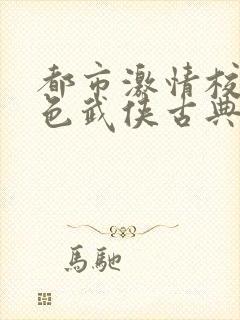 都市激情校
色武侠古典
馬馳